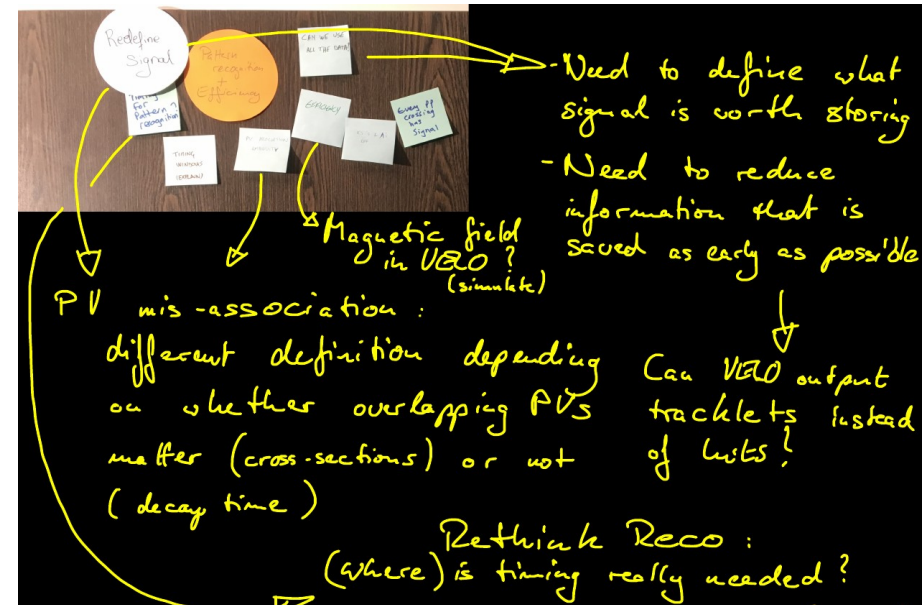 Redefine
Signal
Pattern
recognition
+
Efficiency
CAN WE USE
ALL THE DATA?
Timing
For
Pattern ?
recognition
EFFICIENCY
Every PP
crossing
has
Signal
TIMING
- Need to define what
signal is worth storing
- Need to reduce
information that is
saved as early as possible
Magnetic field
in VELO ?
(simulate)
PV mis-association :
different definition depending
on whether overlapping PVs
matter (cross-sections) or not
(decay time)
Can VELO output
tracklets instead
of hits?
Rethink Reco :
(where) is timing really needed ?